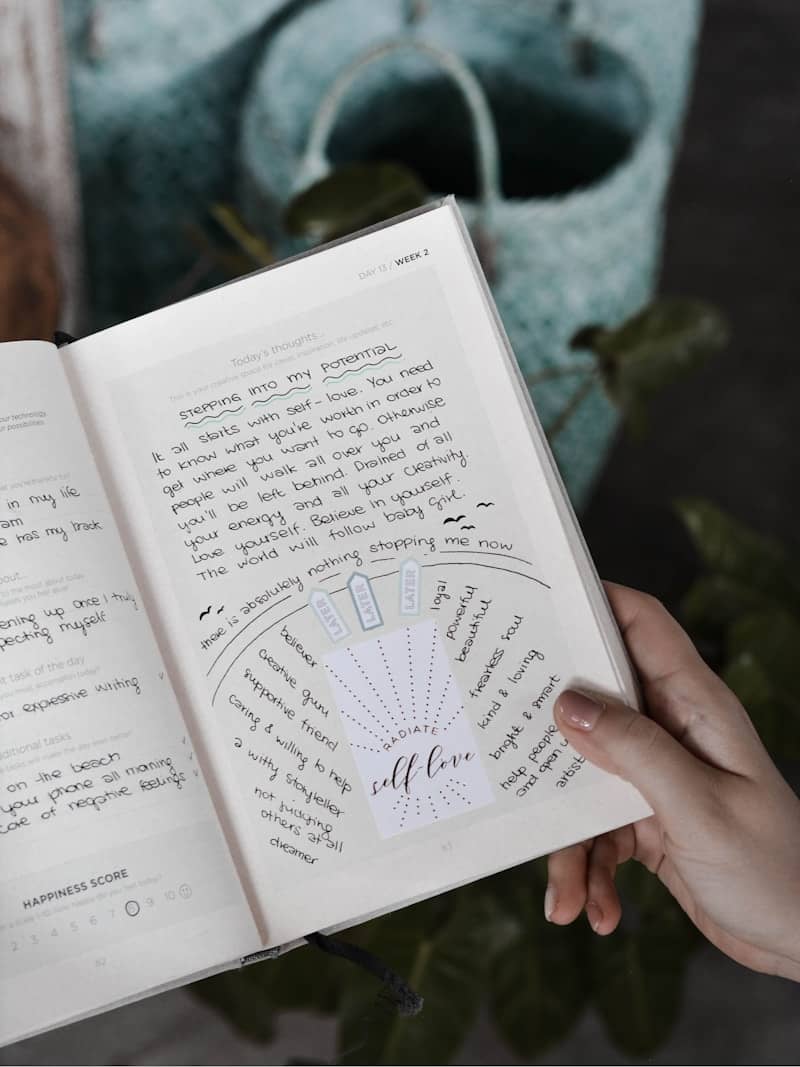 our technology
possibilities.
in my life
am
has my back
about...
ening up once I truly
pecting myself
task of the day
expressive writing
ditional tasks
on the beach
your phone all morning
care of negative feelings
HAPPINESS SCORE
2 3 4 5 6 7 8 9 10
82
DAY 13 / WEEK 2
Today's thoughts...
This is your creative space for ideas, inspiration, life updates, etc.
STEPPING INTO MY POTENTIAL
It all starts with self-love. You need
to know what you're worth in order to
get where you want to go. Otherwise
people will walk all over you and
you'll be left behind. Drained of all
your energy and all your creativity.
Love yourself. Believe in yourself.
The world will follow baby girl.
there is absolutely nothing stopping me now
LATER
LATER
LATER
believer
creative guru
supportive friend
caring & willing to help
a witty storyteller
not judging
others at all
dreamer
RADIATE
self love
loyal
powerful
beautiful
fearless soul
kind & loving
bright & smart
help people
and open
artist
83